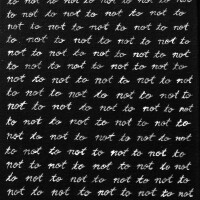 to not to not to not to not
to not to not to not to not
not to not to not to not to
not to not to not to not to
not to not to not to not to
to not to not to not to not
not to not to not to not to
to not to not to not to not
to not to not to not to not
to not to not to not to not to
to not to not to not to not
to not to not to not to not
not to not to not to not to
not to not to not to not to
not to not to not to not to